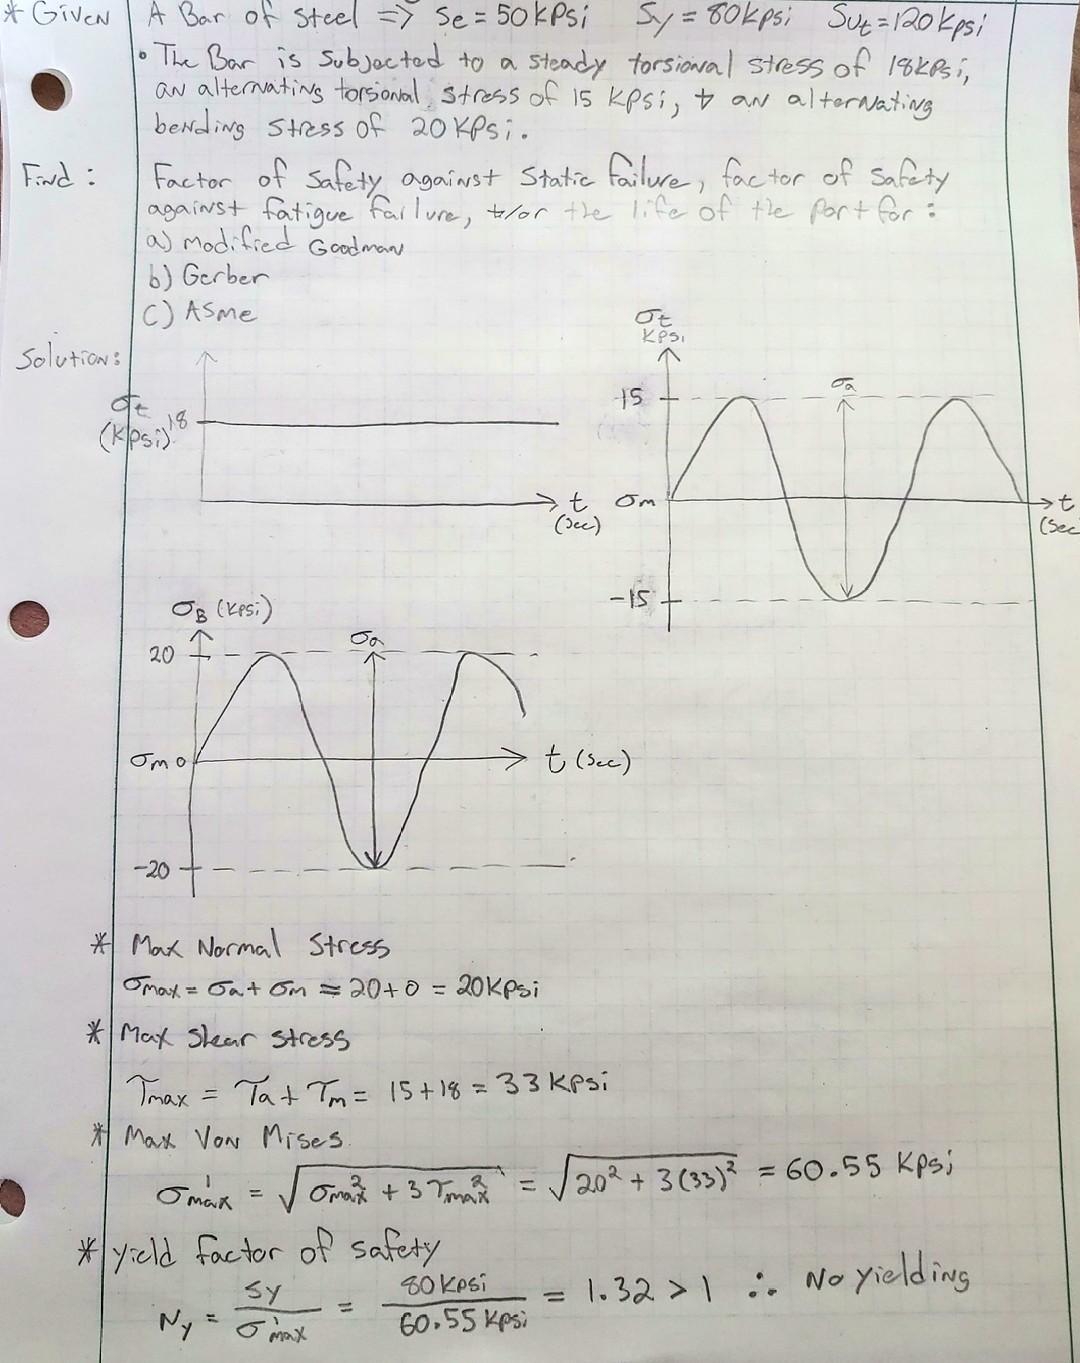 * Given A Bar of Steel => Se = 50 kpsi Sy = 80 kpsi Sut = 120 kpsi
• The Bar is Subjected to a steady torsional stress of 18 kpsi,
an alternating torsional stress of 15 kpsi, + an alternating
bending stress of 20 kpsi.
Find: Factor of Safety against Static failure, factor of safety
against fatigue failure, +/or the life of the part for:
a) Modified Goodman
b) Gerber
c) ASme
Solution:
σt
(kpsi)
18
t
(sec)
σt
kpsi
15
σa
σm
t
(sec
-15
σB (kpsi)
20
σa
σm 0
t (sec)
-20
* Max Normal Stress
σmax = σa + σm = 20 + 0 = 20 kpsi
* Max Shear Stress
τmax = τa + τm = 15 + 18 = 33 kpsi
* Max Von Mises
σ'max = √(σmax² + 3τmax²) = √(20² + 3(33)²) = 60.55 kpsi
* yield factor of safety
Ny = Sy / σ'max = 80 kpsi / 60.55 kpsi = 1.32 > 1 ∴ No yielding